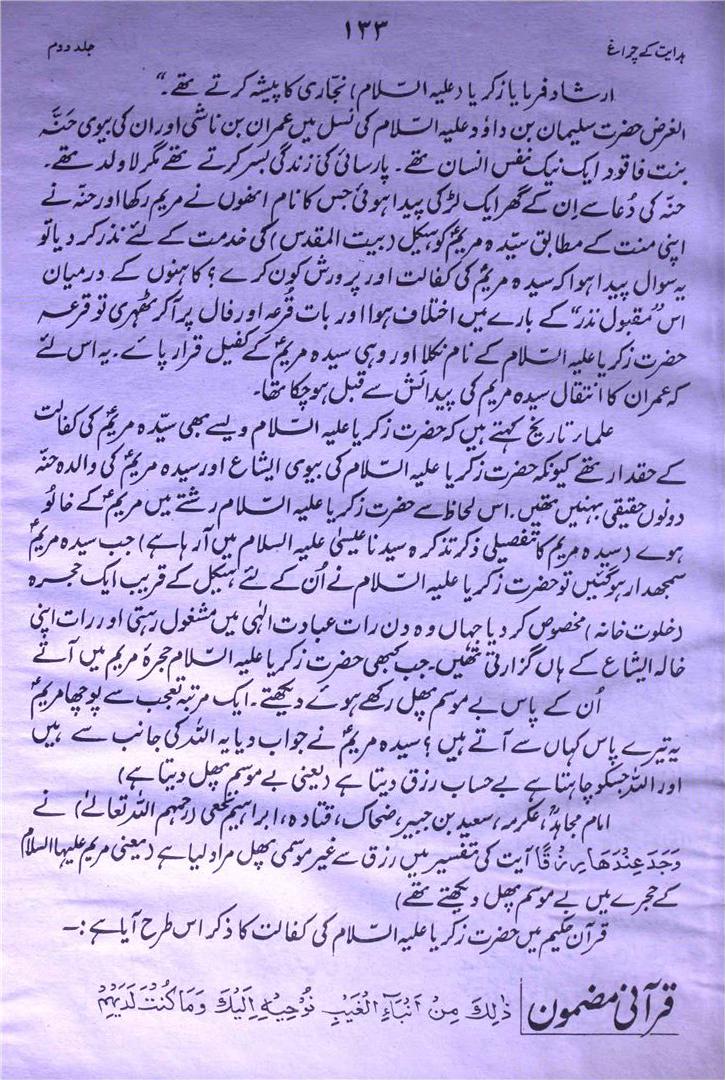 ۱۳۳
ہدایت کے چراغ
جلد دوم
ارشاد فرمایا زکریا (علیہ السّلام) نجّاری کا پیشہ کرتے تھے۔"
الغرض حضرت سلیمان بن داؤد علیہ السّلام کی نسل میں عمران بن ناشی اور ان کی بیوی حَنّہ
بنت فاقود ایک نیک نفس انسان تھے۔ پارسائی کی زندگی بسر کرتے تھے مگر لا ولد تھے۔
حنّہ کی دُعا سے اِن کے گھر ایک لڑکی پیدا ہوئی جس کا نام انھوں نے مریم رکھا اور حنّہ نے
اپنی منت کے مطابق سیّدہ مریمؑ کو ہیکل (بیت المقدس) کی خدمت کے لئے نذر کر دیا تو
یہ سوال پیدا ہوا کہ سیدہ مریمؑ کی کفالت اور پرورش کون کرے؟ کاہنوں کے درمیان
اس "مقبول نذر" کے بارے میں اختلاف ہوا اور بات قُرعہ اور فال پر آکر ٹھہری تو قرعہ
حضرت زکریا علیہ السّلام کے نام نکلا اور وہی سیدہ مریمؑ کے کفیل قرار پائے۔ یہ اس لئے
کہ عمران کا انتقال سیدہ مریم کی پیدائش سے قبل ہو چکا تھا۔
علمار تاریخ کہتے ہیں کہ حضرت زکریا علیہ السّلام ویسے بھی سیّدہ مریمؑ کی کفالت
کے حقدار تھے کیونکہ حضرت زکریا علیہ السّلام کی بیوی ایشاع اور سیدہ مریمؑ کی والدہ حنّہ
دونوں حقیقی بہنیں تھیں۔ اس لحاظ سے حضرت زکریا علیہ السّلام رشتے میں مریمؑ کے خالُو
ہوے (سیدہ مریمؑ کا تفصیلی ذکر تذکرہ سیدنا عیسیٰ علیہ السلام میں آرہا ہے) جب سیدہ مریمؑ
سمجھدار ہوگئیں تو حضرت زکریا علیہ السّلام نے اُن کے لئے ہیکل کے قریب ایک حجرہ
(خلوت خانہ) مخصوص کر دیا جہاں وہ دن رات عبادت الٰہی میں مشغول رہتی اور رات اپنی
خالہ ایشاع کے ہاں گزارتی تھیں۔ جب کبھی حضرت زکریا علیہ السّلام حجرۂ مریم میں آتے
اُن کے پاس بے موسم پھل رکھے ہوئے دیکھتے۔ ایک مرتبہ تعجب سے پوچھا مریمؑ
یہ تیرے پاس کہاں سے آتے ہیں؟ سیدہ مریمؑ نے جواب دیا یہ اللہ کی جانب سے ہیں
اور اللہ جسکو چاہتا ہے بے حساب رزق دیتا ہے (یعنی بے موسم پھل دیتا ہے)
امام مجاہدؒ، عکرمہ، سعید بن جبیر، ضحاک، قتادہ، ابراہیم نخعی (رحمہم اللہ تعالےٰ) نے
وَجَدَ عِنْدَهَا رِزْقًا آیت کی تفسیر میں رزق سے غیر موسمی پھل مراد لیا ہے (یعنی مریم علیہا السلام
کے حجرے میں بے موسم پھل دیکھتے تھے)
قرآن حکیم میں حضرت زکریا علیہ السّلام کی کفالت کا ذکر اس طرح آیا ہے:۔
قرآنی مضمون ذٰلِكَ مِنْ اَنْۢبَآءِ الْغَيْبِ نُوْحِيْهِ اِلَيْكَ وَمَا كُنْتَ لَدَيْهِمْ